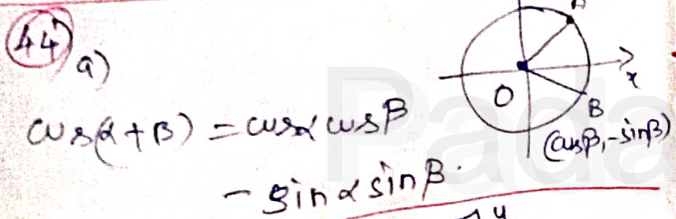 44
a)
cos(α+β) = cosα cosβ
- sinα sinβ.
A
x
O
B
(cosβ, -sinβ)
y
Pada